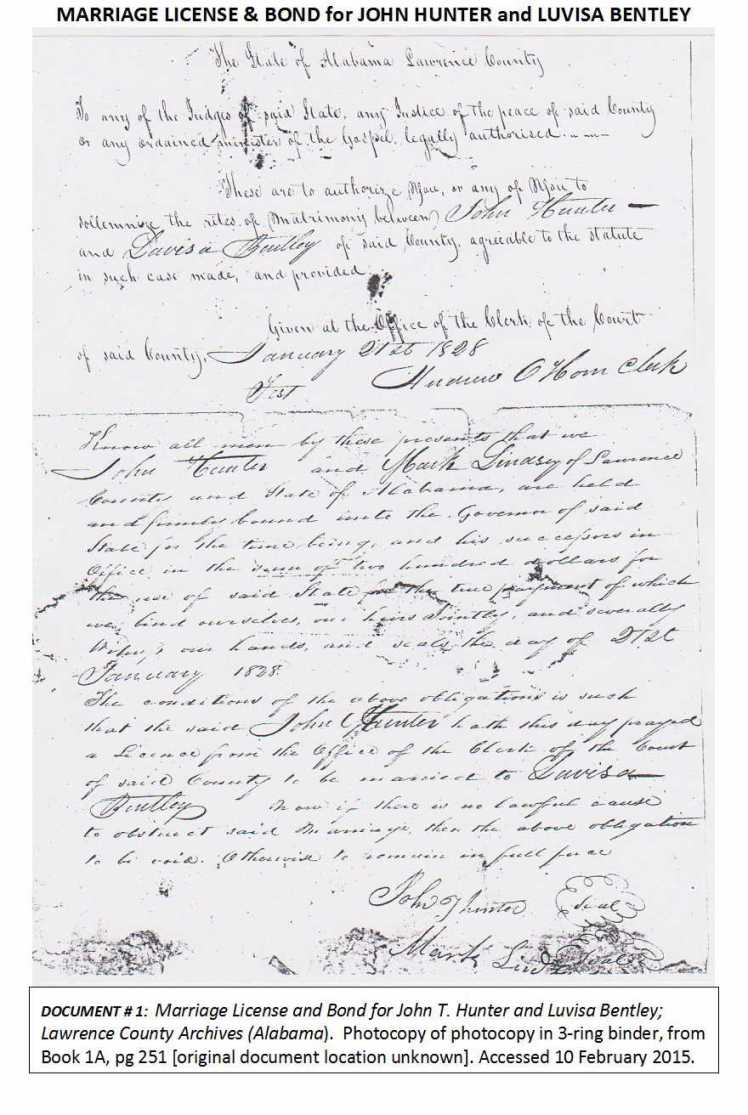 MARRIAGE LICENSE & BOND for JOHN HUNTER and LUVISA BENTLEY
The State of Alabama Lawrence County
To any of the Judges of said State, any Justice of the peace of said County
or any ordained minister of the Gospel, legally authorised
These are to authorize You, or any of You to
solemnize the rites of Matrimony between John Hunter
and Luvisa Bentley of said County, agreeable to the statute
in such case made, and provided
Given at the Office of the Clerk of the Court
of said County, January 21st 1828
Test
Clerk
Know all men by these presents that we
John Hunter and Mark Lindsey of Lawrence
County and State of Alabama, are held
and firmly bound unto the Governor of said
State for the time being, and his successors in
Office, in the sum of two hundred dollars for
the use of said State for the true payment of which
we, bind ourselves, our heirs Jointly, and severally
our hands, and seals the day of 21st
January 1828
The conditions of the above obligations is such
that the said John Hunter hath this day prayed
a Licence from the Office of the Clerk of the Court
of said County to be married to Luvisa
Bentley Now if there is no lawful cause
to obstruct said Marriage, then the above obligation
to be void. Otherwise to remain in full force
John T Hunter Seal
Mark Seal
DOCUMENT # 1: Marriage License and Bond for John T. Hunter and Luvisa Bentley;
Lawrence County Archives (Alabama). Photocopy of photocopy in 3-ring binder, from
Book 1A, pg 251 [original document location unknown]. Accessed 10 February 2015.